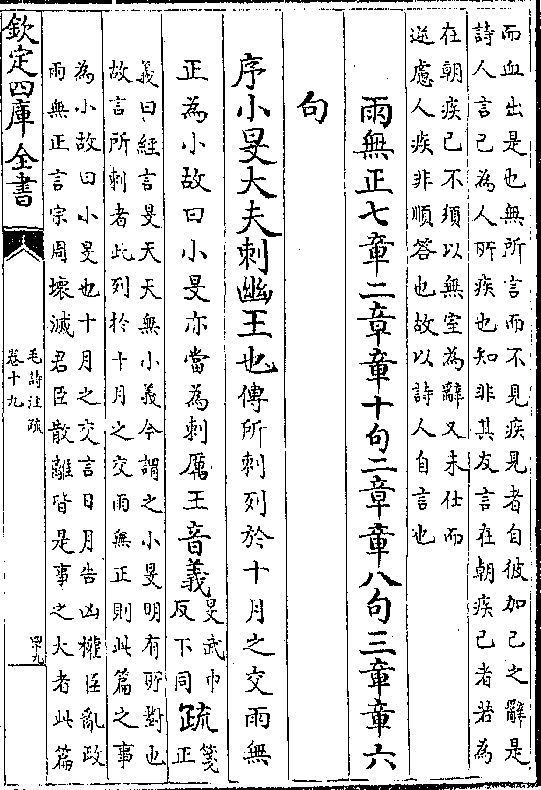 而血出是也無所言而不見疾見者自彼加己之辭是
詩人言己為人所疾也知非其友言在朝疾己者若為
在朝疾己不須以無室為辭又未仕而
逆慮人疾非順答也故以詩人自言也
雨無正七章二章章十句二章章八句三章章六
句
序小旻大夫刺幽王也傳所刺列於十月之交雨無
正為小故曰小旻亦當為刺厲王音義旻武巾
反下同疏箋
正
義曰經言旻天天無小義今謂之小旻明有所對也
故言所刺者此列於十月之交雨無正則此篇之事
為小故曰小旻也十月之交言日月告凶權臣亂政
雨無正言宗周壞滅君臣散離皆是事之大者此篇
欽定四庫全書
毛詩注疏
卷十九
罕九